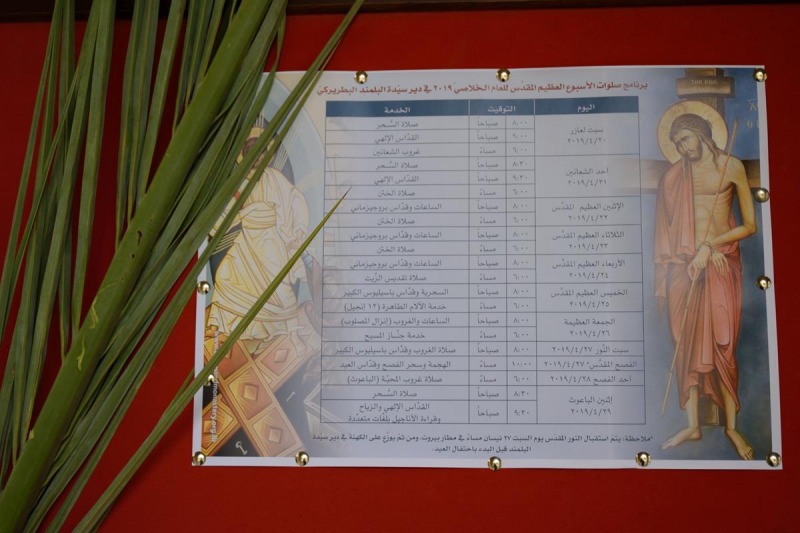 برنامج صلوات الأسبوع العظيم المقدّس للعام الخلاصيّ ٢٠١٩ في دير سيّدة البلمند البطريركي
اليوم التوقيت الخدمة
سبت لعازر ٢٠١٩/٤/٢٠
٨:٠٠ صباحاً صلاة السَّحر
٩:٠٠ صباحاً القدّاس الإلهي
٦:٠٠ مساءً غروب الشعانين
أحد الشعانين ٢٠١٩/٤/٢١
٨:٣٠ صباحاً صلاة السَّحر
٩:٣٠ صباحاً القدّاس الإلهي
٦:٠٠ مساءً صلاة الختن
الإثنين العظيم المقدّس ٢٠١٩/٤/٢٢
٨:٠٠ صباحاً الساعات وقدّاس بروجيزماني
٦:٠٠ مساءً صلاة الختن
الثلاثاء العظيم المقدّس ٢٠١٩/٤/٢٣
٨:٠٠ صباحاً الساعات وقدّاس بروجيزماني
٦:٠٠ مساءً صلاة الختن
الأربعاء العظيم المقدّس ٢٠١٩/٤/٢٤
٨:٠٠ صباحاً الساعات وقدّاس بروجيزماني
٦:٠٠ مساءً صلاة تقديس الزّيت
الخميس العظيم المقدّس ٢٠١٩/٤/٢٥
٨:٠٠ صباحاً السحرية وقدّاس باسيليوس الكبير
٦:٠٠ مساءً خدمة الآلام الطاهرة (١٢ إنجيل)
الجمعة العظيمة ٢٠١٩/٤/٢٦
٨:٠٠ صباحاً الساعات والغروب (إنزال المصلوب)
٦:٠٠ مساءً خدمة جنّاز المسيح
سبت النّور ٢٠١٩/٤/٢٧ ٨:٠٠ صباحاً صلاة الغروب وقدّاس باسيليوس الكبير
الفصح المقدّس* ٢٠١٩/٤/٢٧ ١٠:٠٠ مساءً الهجمة وسحر الفصح وقدّاس العيد
أحد الفصح ٢٠١٩/٤/٢٨ ٦:٠٠ مساءً صلاة غروب المحبّة (الباعوث)
إثنين الباعوث ٢٠١٩/٤/٢٩
٨:٣٠ صباحاً صلاة السَّحر
٩:٣٠ صباحاً القدّاس الإلهي والزياح
وقراءة الأناجيل بلغات متعدّدة
*ملاحظة: يتمّ استقبال النور المقدّس يوم السبت ٢٧ نيسان مساءً في مطار بيروت، ومن ثمّ يوزّع على الكهنة في دير سيّدة
البلمند قبل البدء باحتفال العيد.